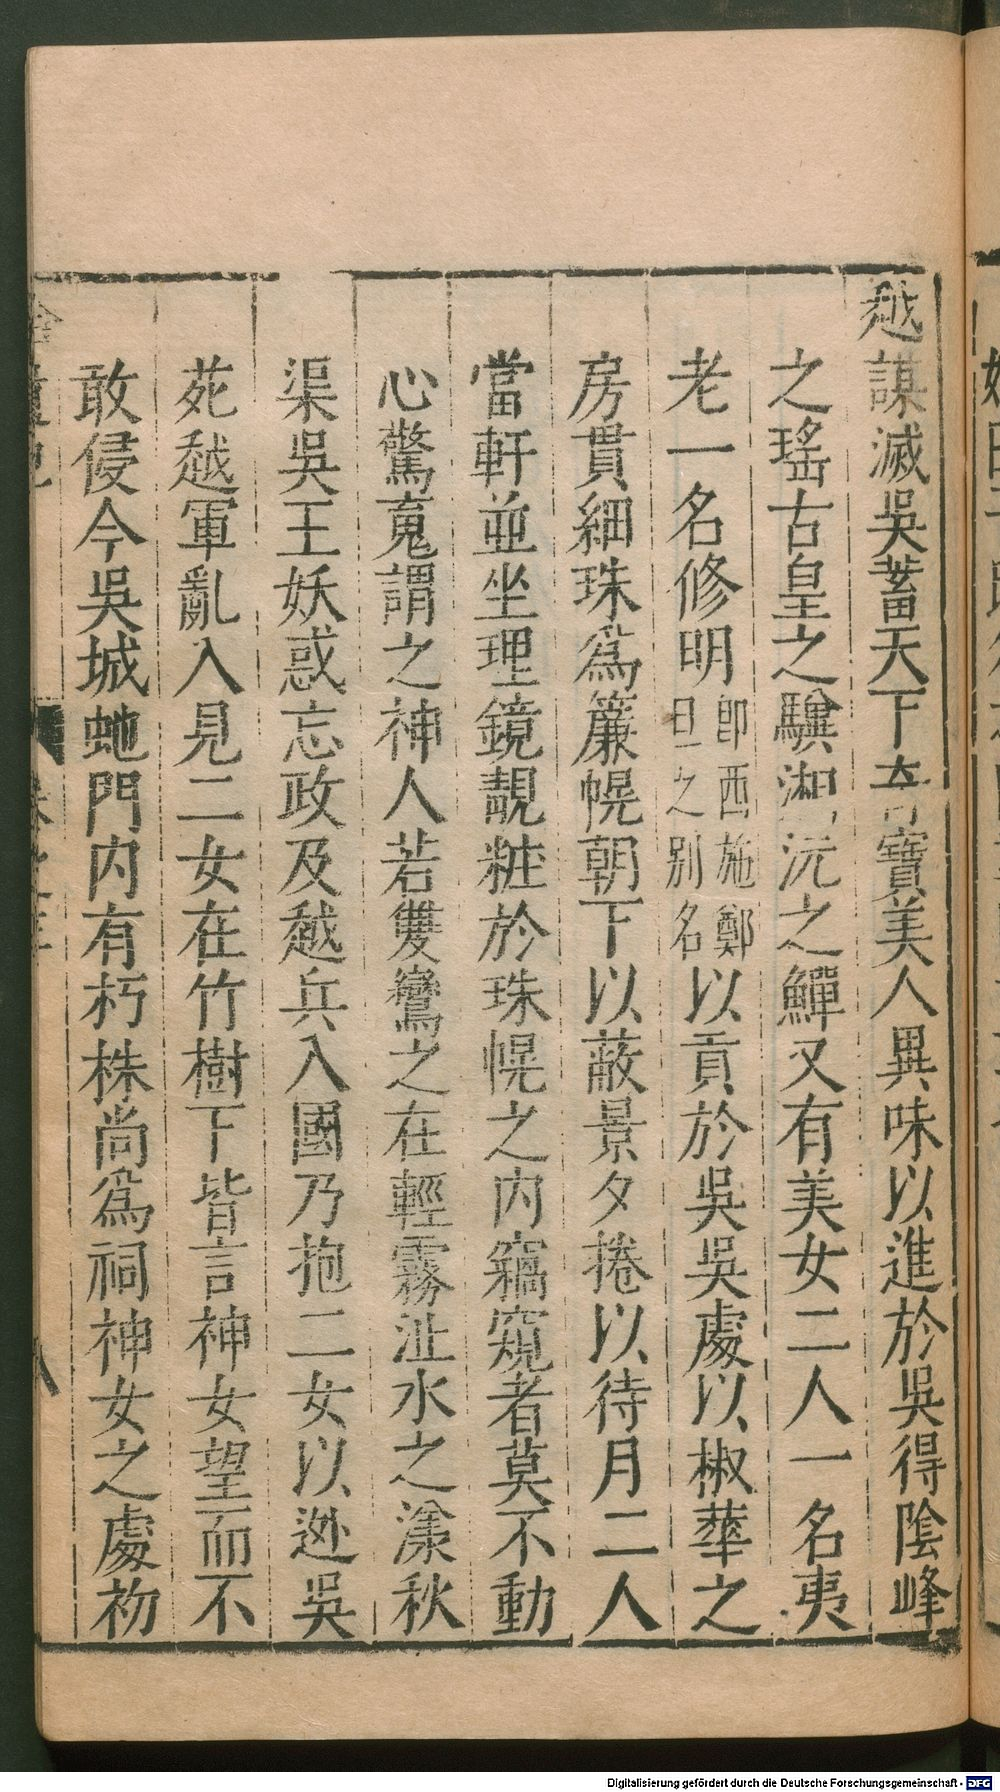 越謀滅吳蓄天下奇寶美人異味以進於吳得陰峰
之瑤古皇之驥湘沅之鱓又有美女二人一名夷
老一名修明即西施鄭旦之別名以貢於吳吳處以椒華之
房貫細珠爲簾幌朝下以蔽景夕捲以待月二人
當軒並坐理鏡靚粧於珠幌之內竊窺者莫不動
心驚䰟謂之神人若雙鸞之在輕霧沚水之漾秋
渠吳王妖惑忘政及越兵入國乃抱二女以逃吳
苑越軍亂入見二女在竹樹下皆言神女望而不
敢侵今吳城虵門內有朽株尚爲祠神女之處初
卷之三
八
Digitalisierung gefördert durch die Deutsche Forschungsgemeinschaft - DFG